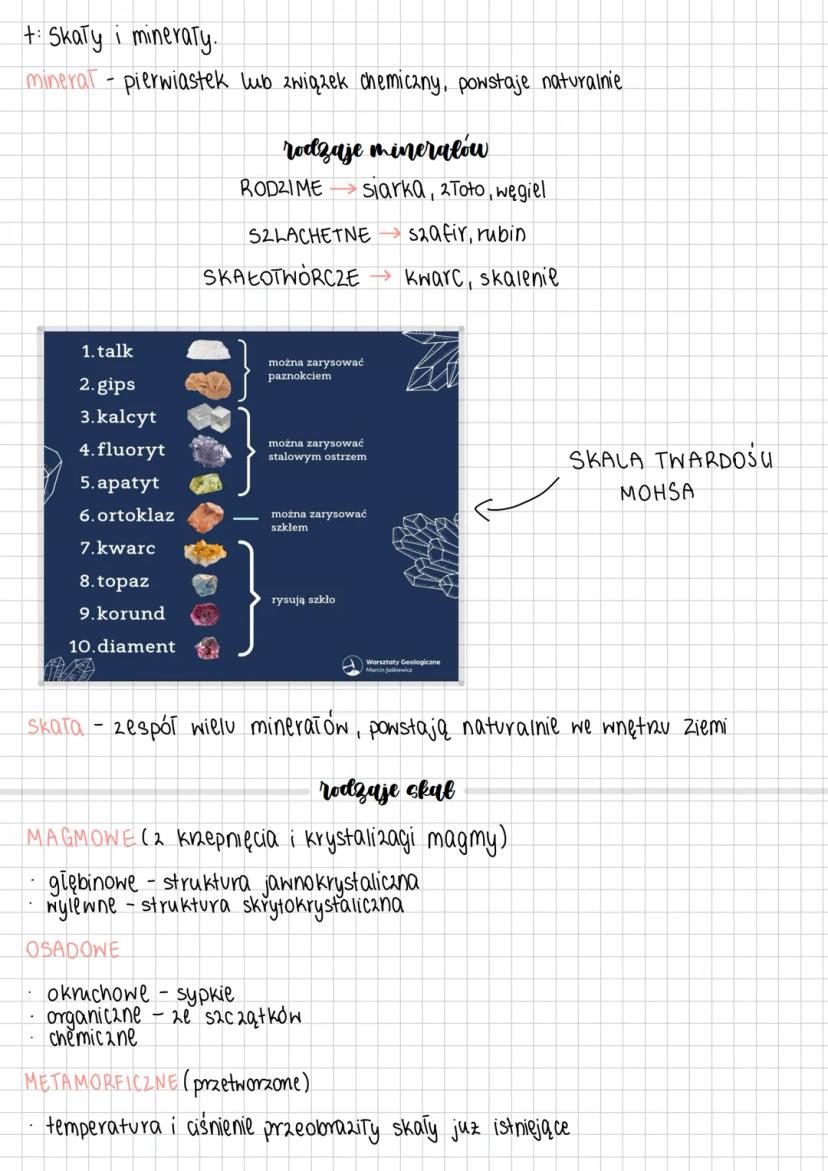 t: Skały i minerały.
minerał - pierwiastek lub związek chemiczny, powstaje naturalnie
rodzaje minerałów
RODZIME → siarka, złoto, węgiel
SZLACHETNE → szafir, rubin
SKAŁOTWÓRCZE → kwarc, skalenie
1. talk
można zarysować
paznokciem
2. gips
3. kalcyt
4. fluoryt
można zarysować
stalowym ostrzem
5. apatyt
6. ortoklaz
można zarysować
szkłem
7. kwarc
8. topaz
rysują szkło
9. korund
10. diament
Warsztaty Geologiczne
Marcin Jaśkiewicz
SKALA TWARDOŚCI
MOHSA
skała - zespół wielu minerałów, powstają naturalnie we wnętrzu Ziemi
rodzaje skał
MAGMOWE (z krzepnięcia i krystalizacji magmy)
· głębinowe - struktura jawnokrystaliczna
· wylewne - struktura skrytokrystaliczna
OSADOWE
· okruchowe - sypkie
· organiczne - ze szczątków
· chemiczne
METAMORFICZNE (przetworzone)
· temperatura i ciśnienie przeobraziły skały już istniejące